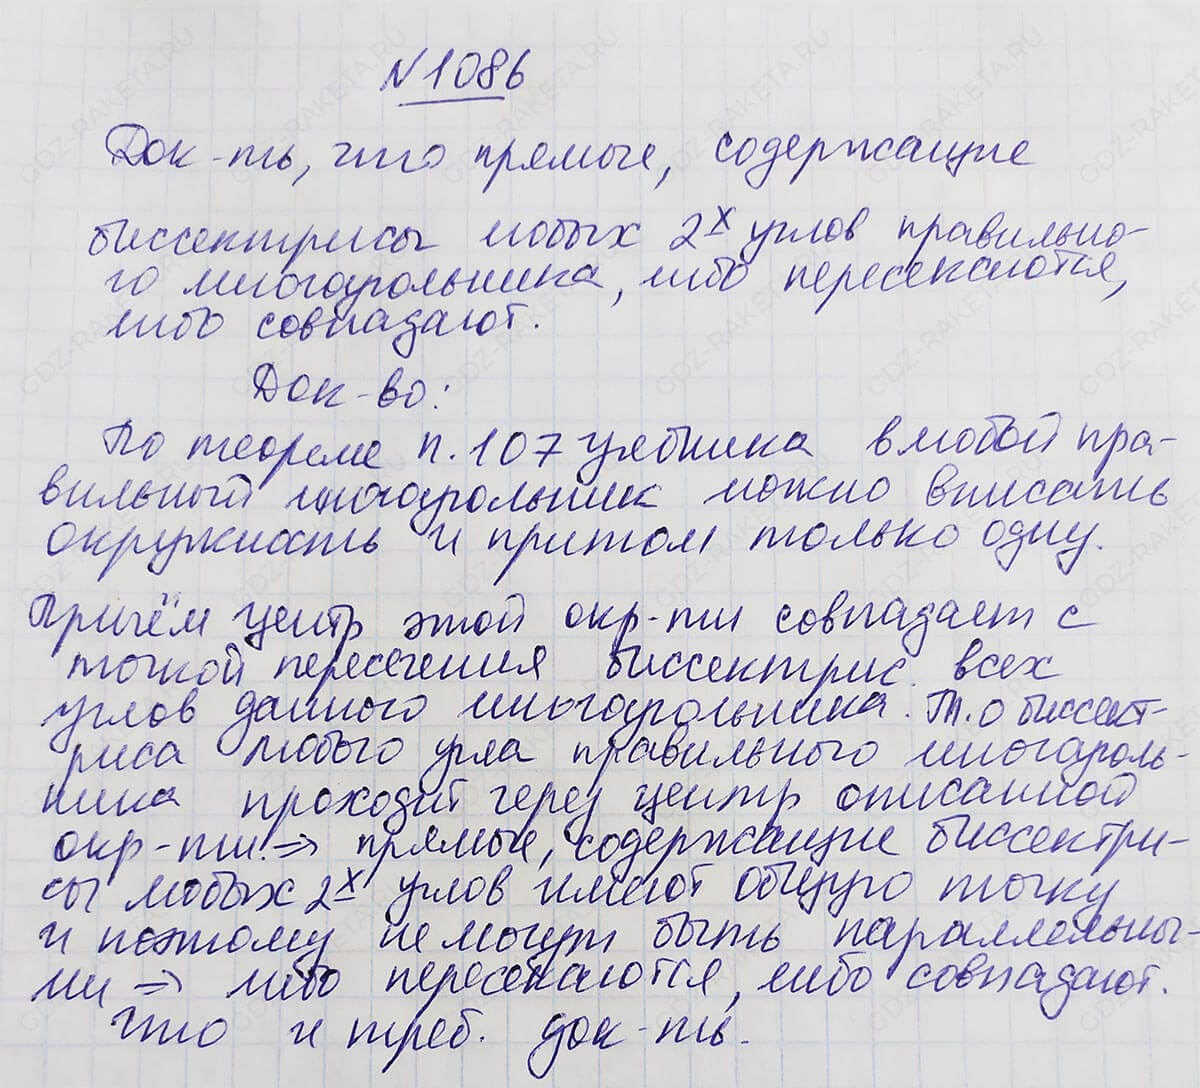 N1086
Док-ть, что прямые, содержащие
биссектрисы любых 2х углов правильно-
го многоугольника, либо пересекаются,
либо совпадают.
Док-во:
По теореме п.107 учебника в любой пра-
вильный многоугольник можно вписать
окружность и притом только одну.
Причём центр этой окр-ти совпадает с
точкой пересечения биссектрис всех
углов данного многоугольника. Т.о биссект-
риса любого угла правильного многоуголь-
ника проходит через центр описанной
окр-ти. => прямые, содержащие биссектри-
сы любых 2х углов имеют общую точку
и поэтому не могут быть параллельны-
ми => либо пересекаются, либо совпадают.
Что и треб. док-ть.
GDZ-RAKETA.RU